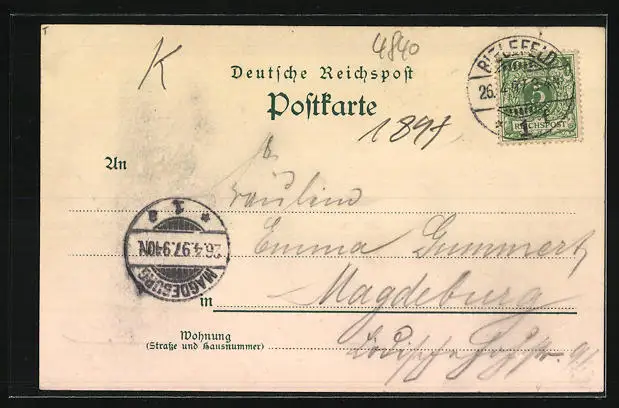 K
4840
Deutsche Reichspost
Postkarte
1897
BIELEFELD
26.4.97
1
5
REICHSPOST
An
Fräulein
Emma Gummert
in Magdeburg
Wohnung
(Straße und Hausnummer)
1 a
26.4.97.9-10N.
MAGDEBURG